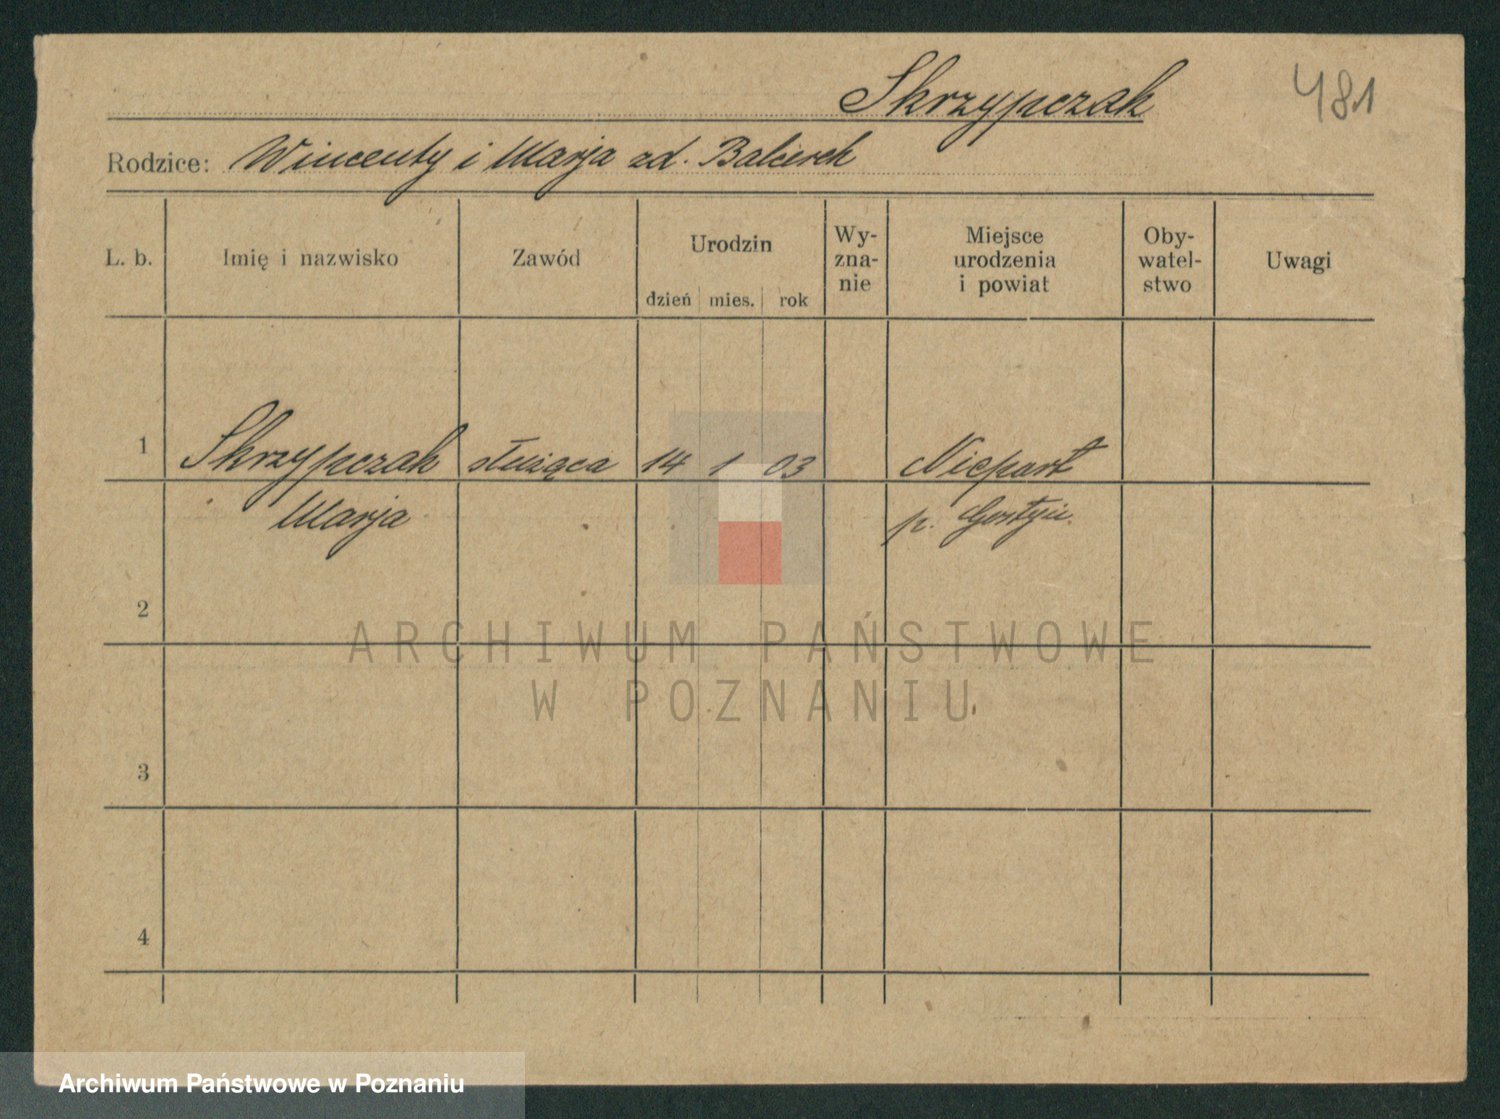 Skrzypczak
481
Rodzice: Wincenty i Marja zd. Balcerek
L. b.
Imię i nazwisko
Zawód
Urodzin
dzień mies. rok
Wy-
zna-
nie
Miejsce
urodzenia
i powiat
Oby-
watel-
stwo
Uwagi
1 Skrzypczak służąca 14 1 03 Niepart
Marja p. Gostyń.
2
3
4
ARCHIWUM PAŃSTWOWE
W POZNANIU
Archiwum Państwowe w Poznaniu